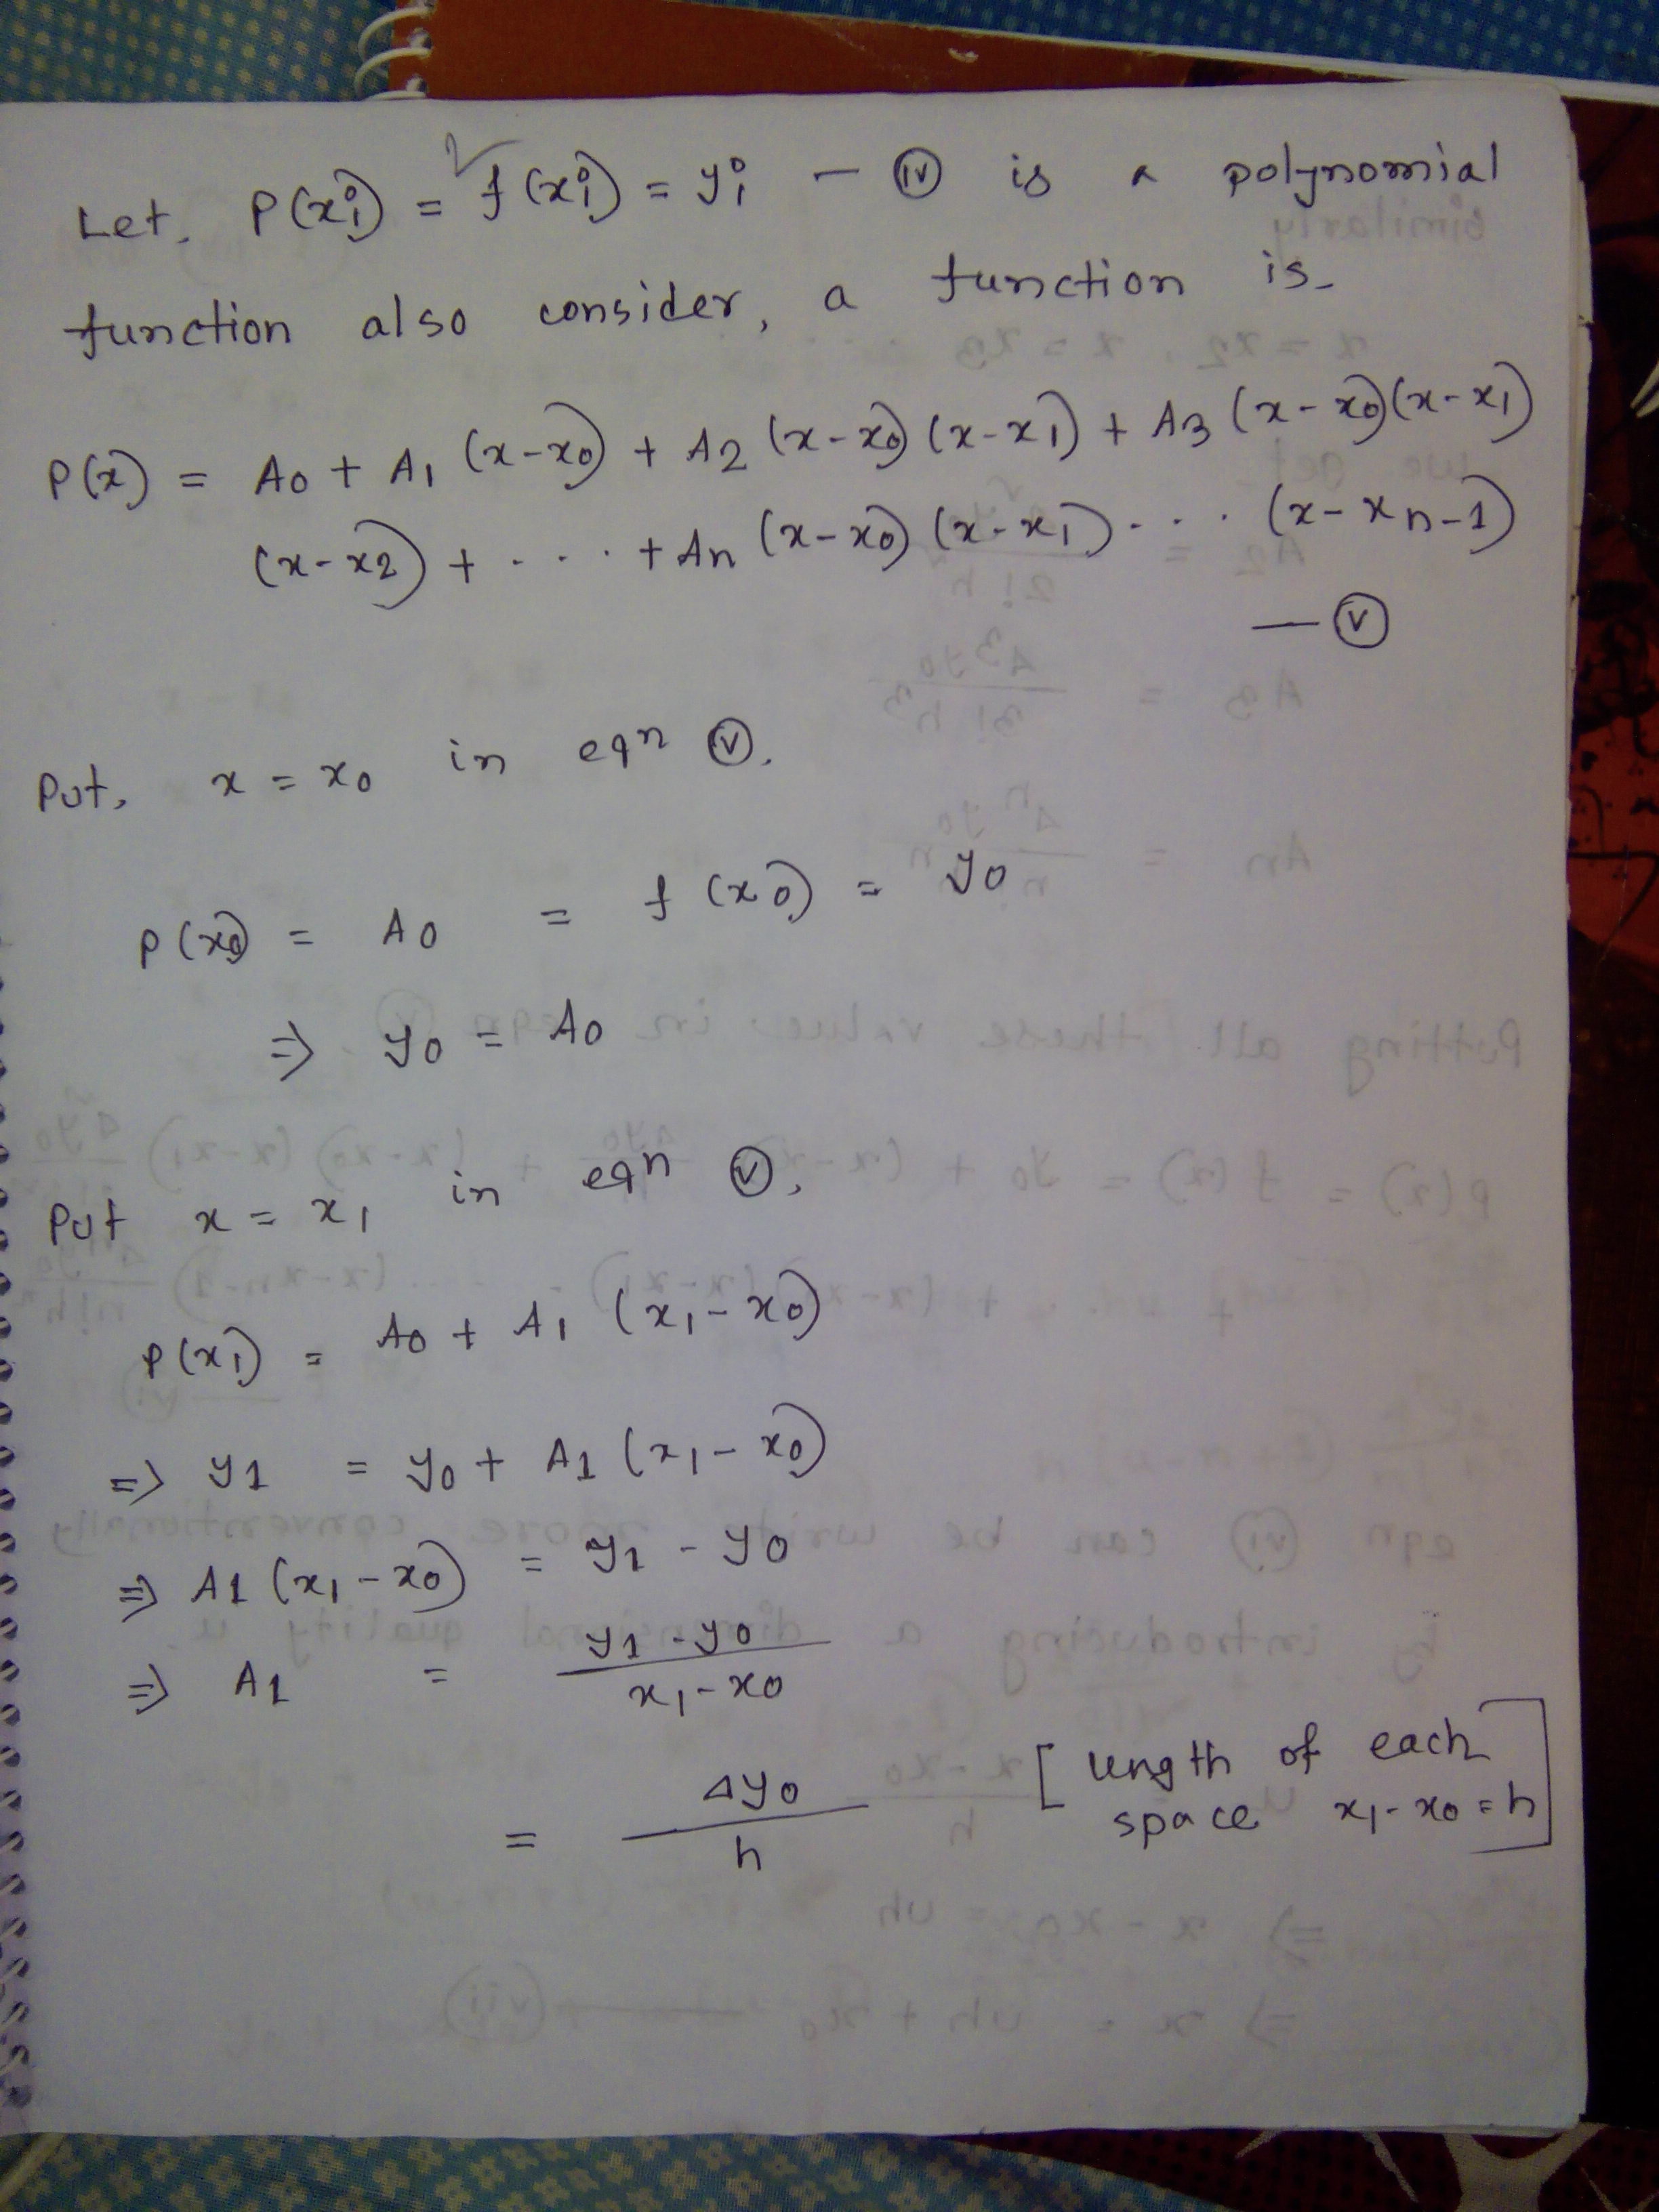 Let, P(xi) = f(xi) = yi - (iv) is a polynomial
function also consider, a function is-
P(x) = A0 + A1 (x-x0) + A2 (x-x0) (x-x1) + A3 (x-x0)(x-x1)
(x-x2) + .... + An (x-x0) (x-x1).... (x-xn-1)
— (v)
Put, x = x0 in eqn (v).
P(x0) = A0 = f(x0) = y0
⇒ y0 = A0
Put x = x1 in eqn (v),
P(x1) = A0 + A1 (x1-x0)
⇒ y1 = y0 + A1 (x1-x0)
⇒ A1 (x1-x0) = y1 - y0
⇒ A1 = y1-y0 / x1-x0
= Δy0 / h [length of each
space x1-x0 = h]